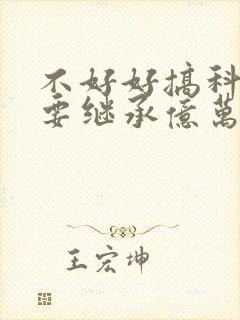 不好好搞科
要继承億萬
王宏坤